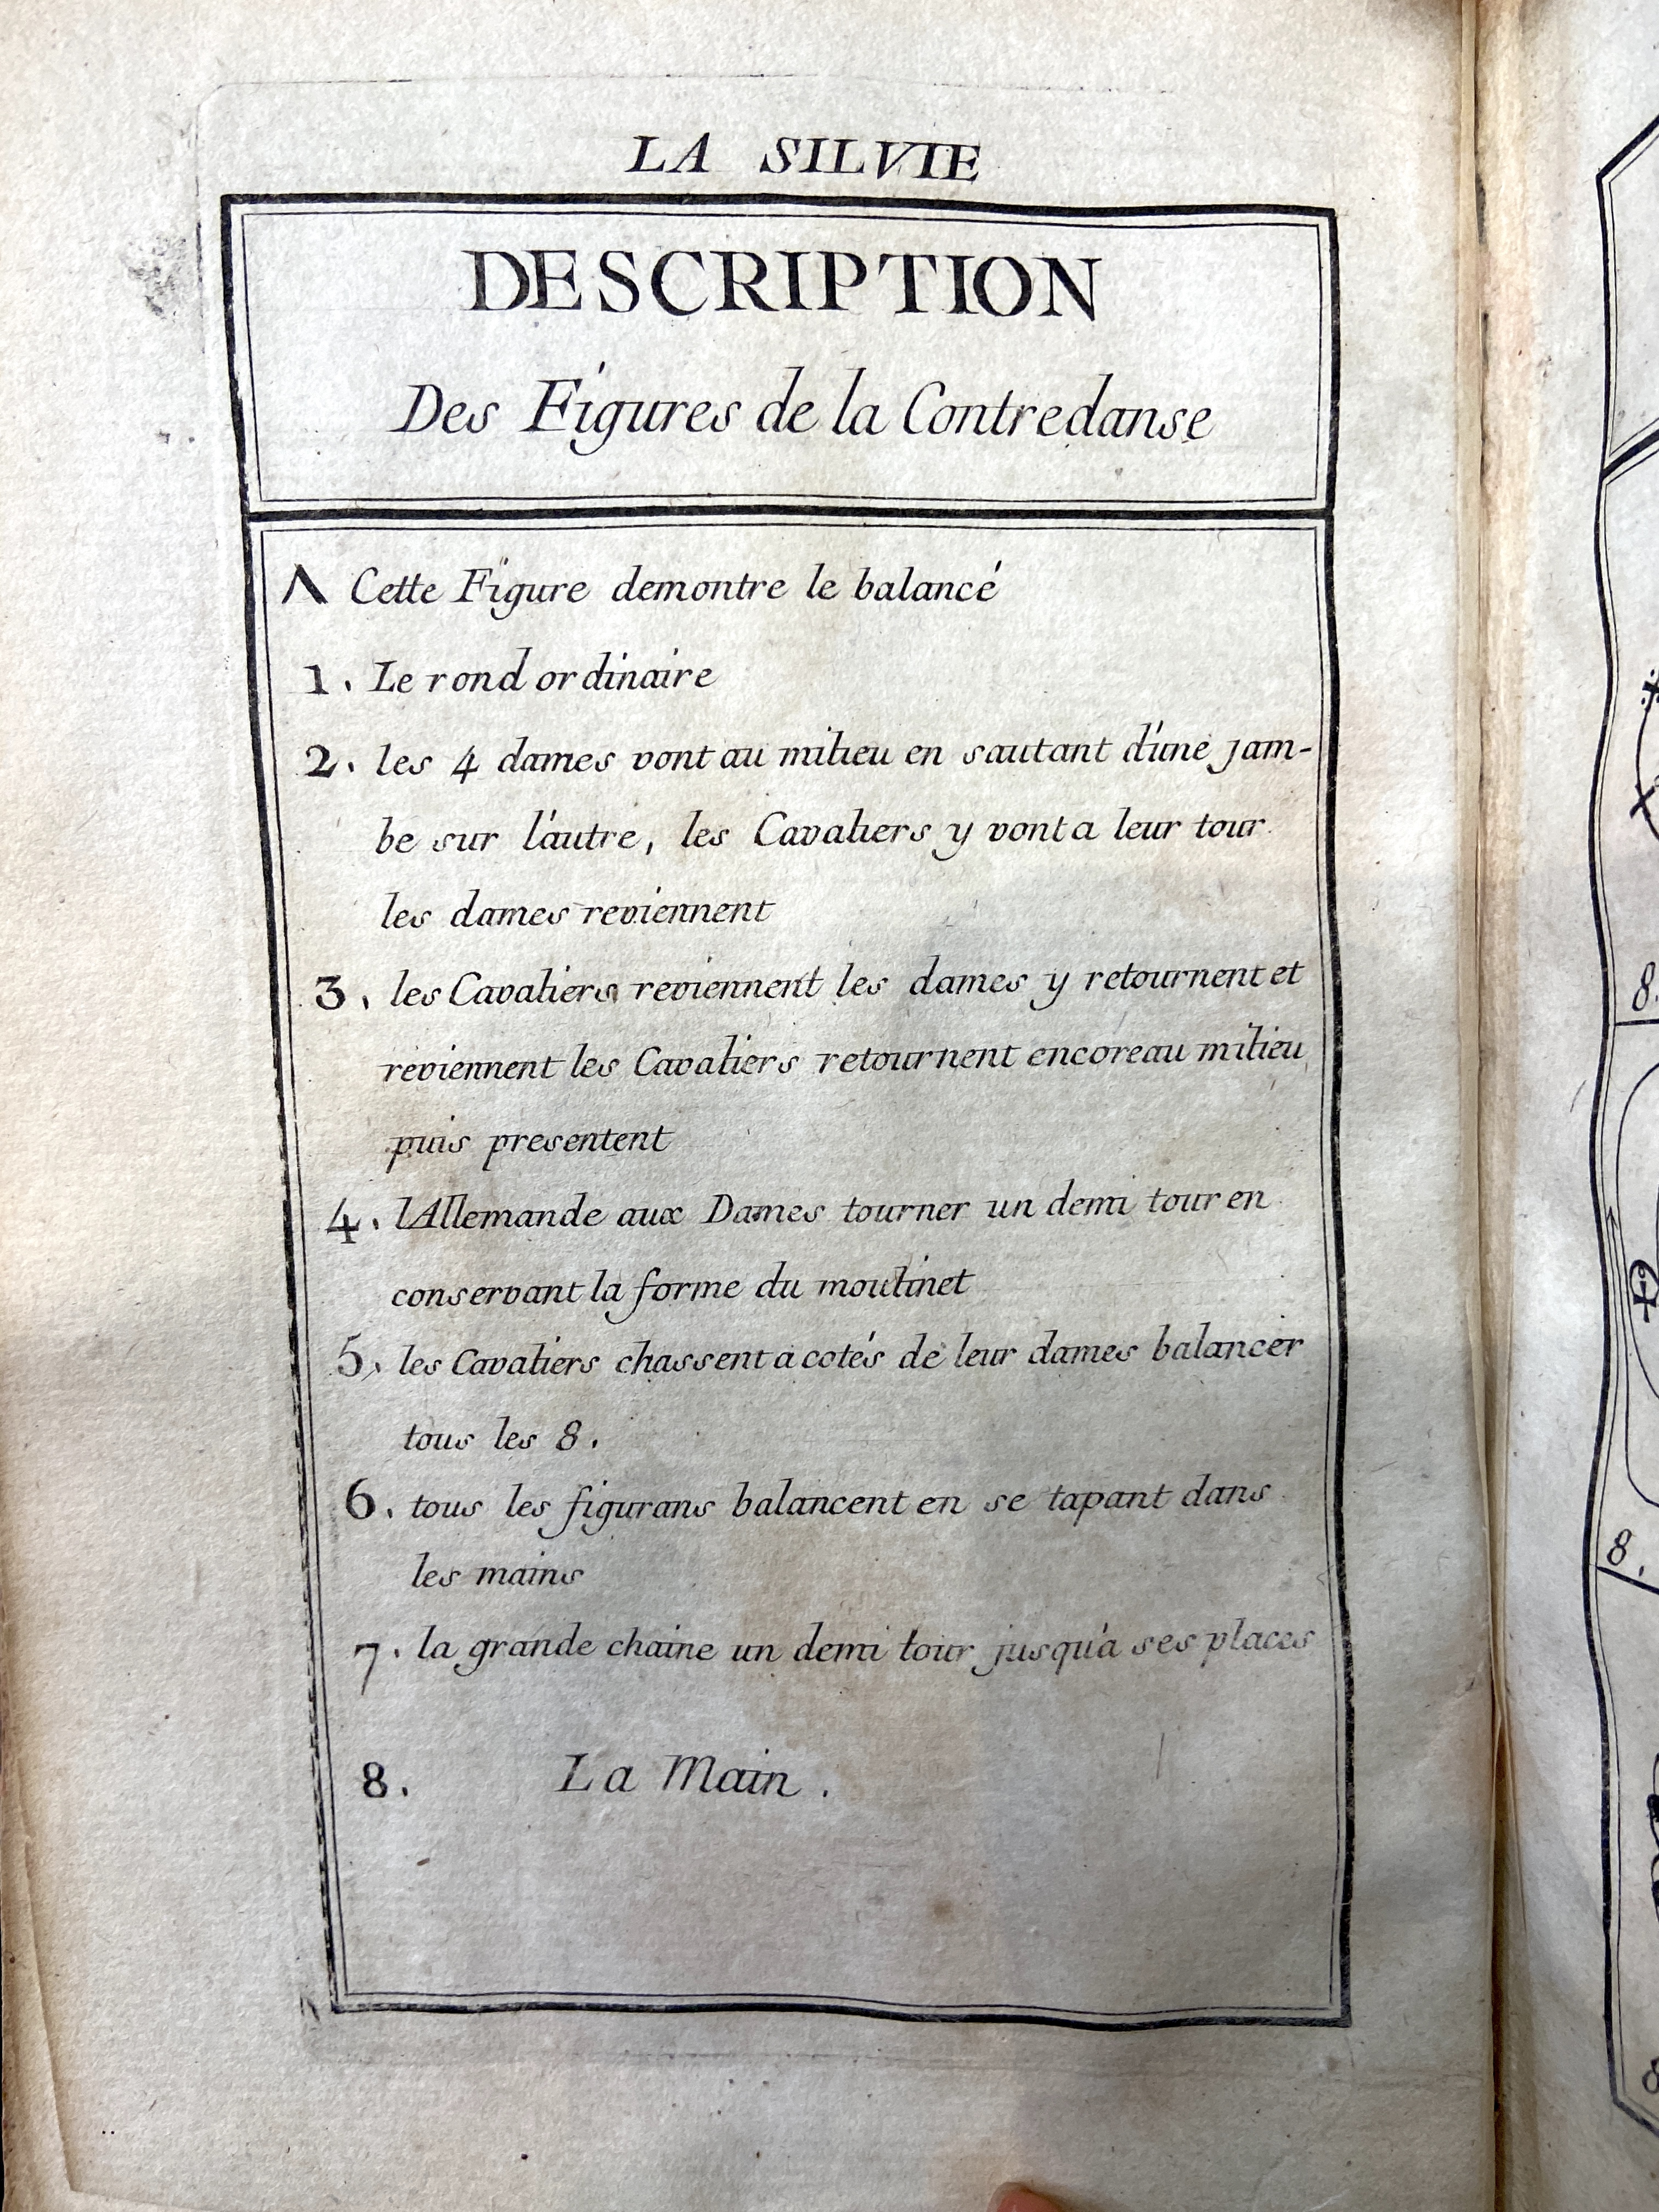 LA SILVIE
DESCRIPTION
Des Figures de la Contredanse
Λ Cette Figure demontre le balancé
1. Le rond ordinaire
2. les 4 dames vont au milieu en sautant d'une jam-
be sur l'autre, les Cavaliers y vont a leur tour
les dames reviennent
3. les Cavaliers reviennent les dames y retournent et
reviennent les Cavaliers retournent encore au milieu
puis presentent
4. l'Allemande aux Dames tourner un demi tour en
conservant la forme du moulinet
5. les Cavaliers chassent a cotés de leur dames balancer
tous les 8.
6. tous les figurans balancent en se tapant dans
les mains
7. la grande chaine un demi tour jusqu'a ses places
8. La Main.
8.
8.